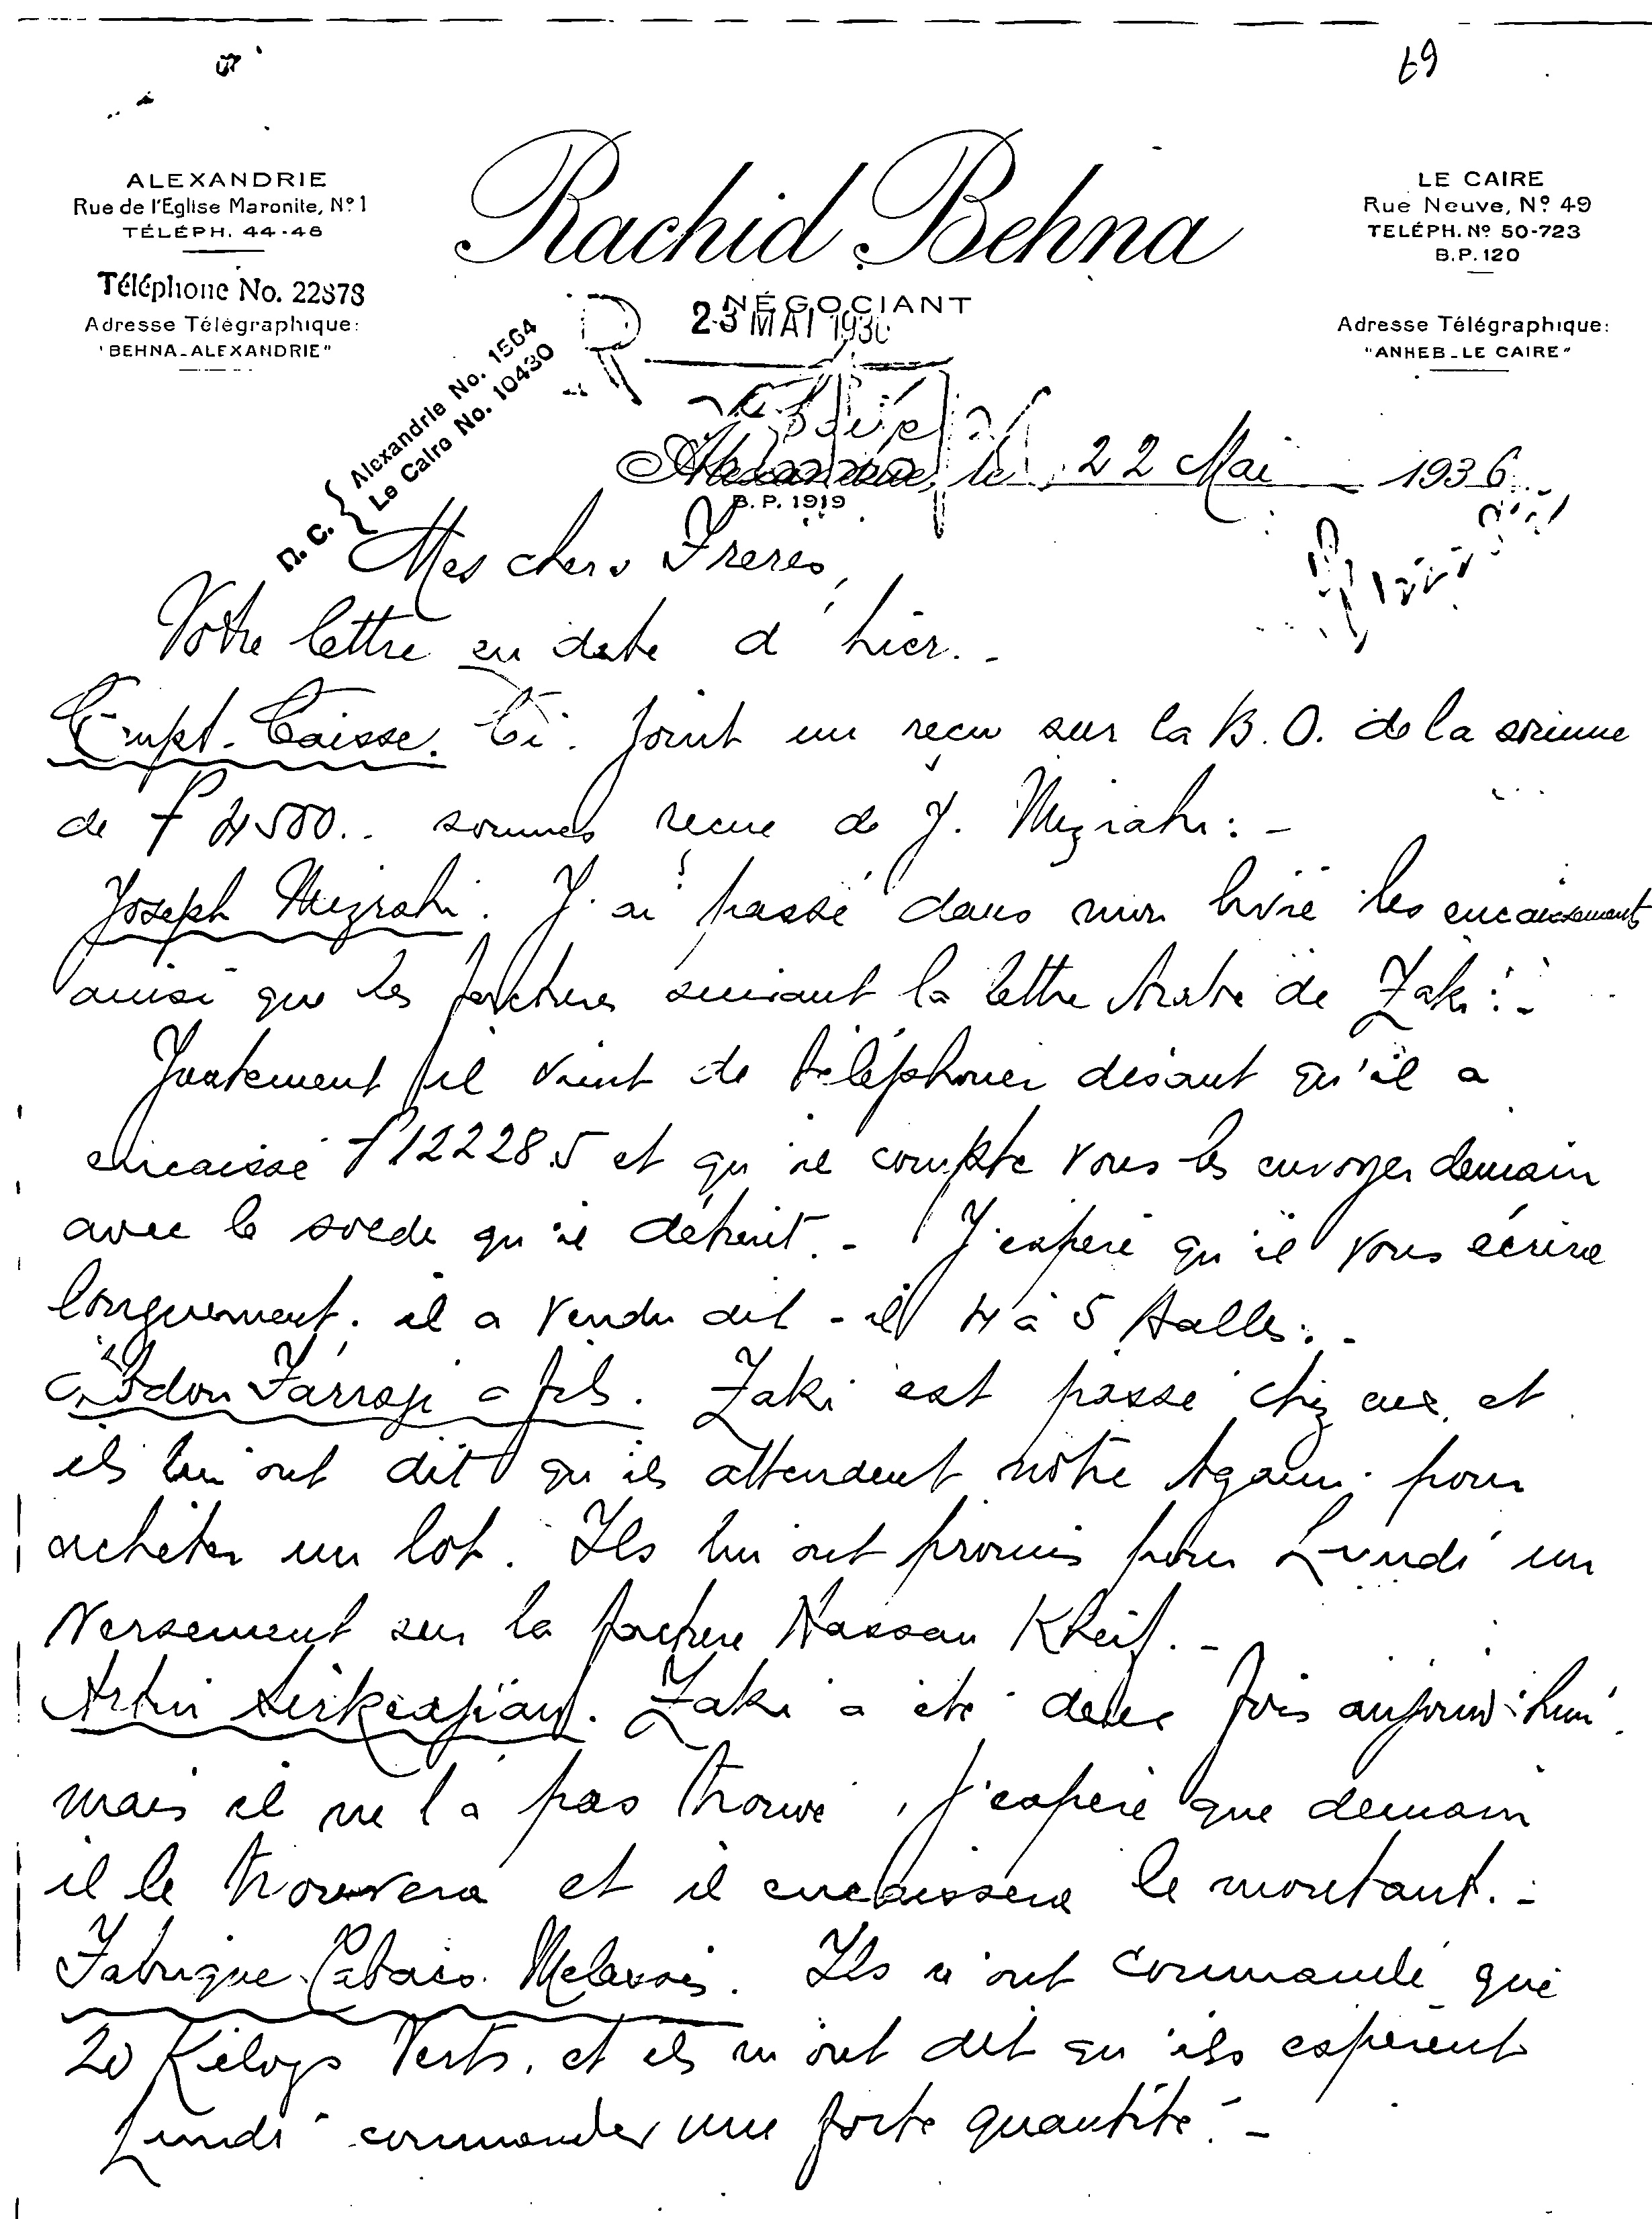 69
ALEXANDRIE
Rue de l'Eglise Maronite, Nº 1
TÉLÉPH. 44-46
Téléphone No. 22878
Adresse Télégraphique:
"BEHNA-ALEXANDRIE"
Rachid Behna
NÉGOCIANT
LE CAIRE
Rue Neuve, Nº 49
TELÉPH. Nº 50-723
B.P. 120
Adresse Télégraphique:
"ANHEB-LE CAIRE"
23 MAI 1936
R. C. { Alexandrie No. 1564
Le Caire No. 10430
Alexandrie, le 22 Mai 1936
B. P. 1919
Mes chers Freres,
Votre lettre en date d'hier. -
Compt. Caisse. Ci-Joint un reçu sur la B.O. de la somme
de £ 4500.. sommes reçue de J. Mizrahi: -
Joseph Mizrahi. J'ai passé dans mon livre les encaissements
ainsi que les factures suivant la lettre Arabe de Zaki: -
Justement il vient de téléphoner disant qu'il a
encaissé £ 12228.5 et qu'il compte vous les envoyer demain
avec le solde qu'il détient. - J'espere qu'il vous écrira
longuement. il a vendu dit-il 4 à 5 Balles. -
Farragi & fils. Zaki est passé chez eux, et
ils lui ont dit qu'ils attendent notre Agami pour
acheter un lot. Ils lui ont promis pour Lundi un
Versement sur la facture Hassan Kheif. -
Artin Zaki a été deux fois aujourd'hui
mais il ne l'a pas trouvé, j'espere que demain
il le trouvera et il encaissera le montant. -
Fabrique Tabacs. Ils n'ont commandé que
20 Kilogs Verts, et ils m'ont dit qu'ils espérent
Lundi commander une forte quantité. -